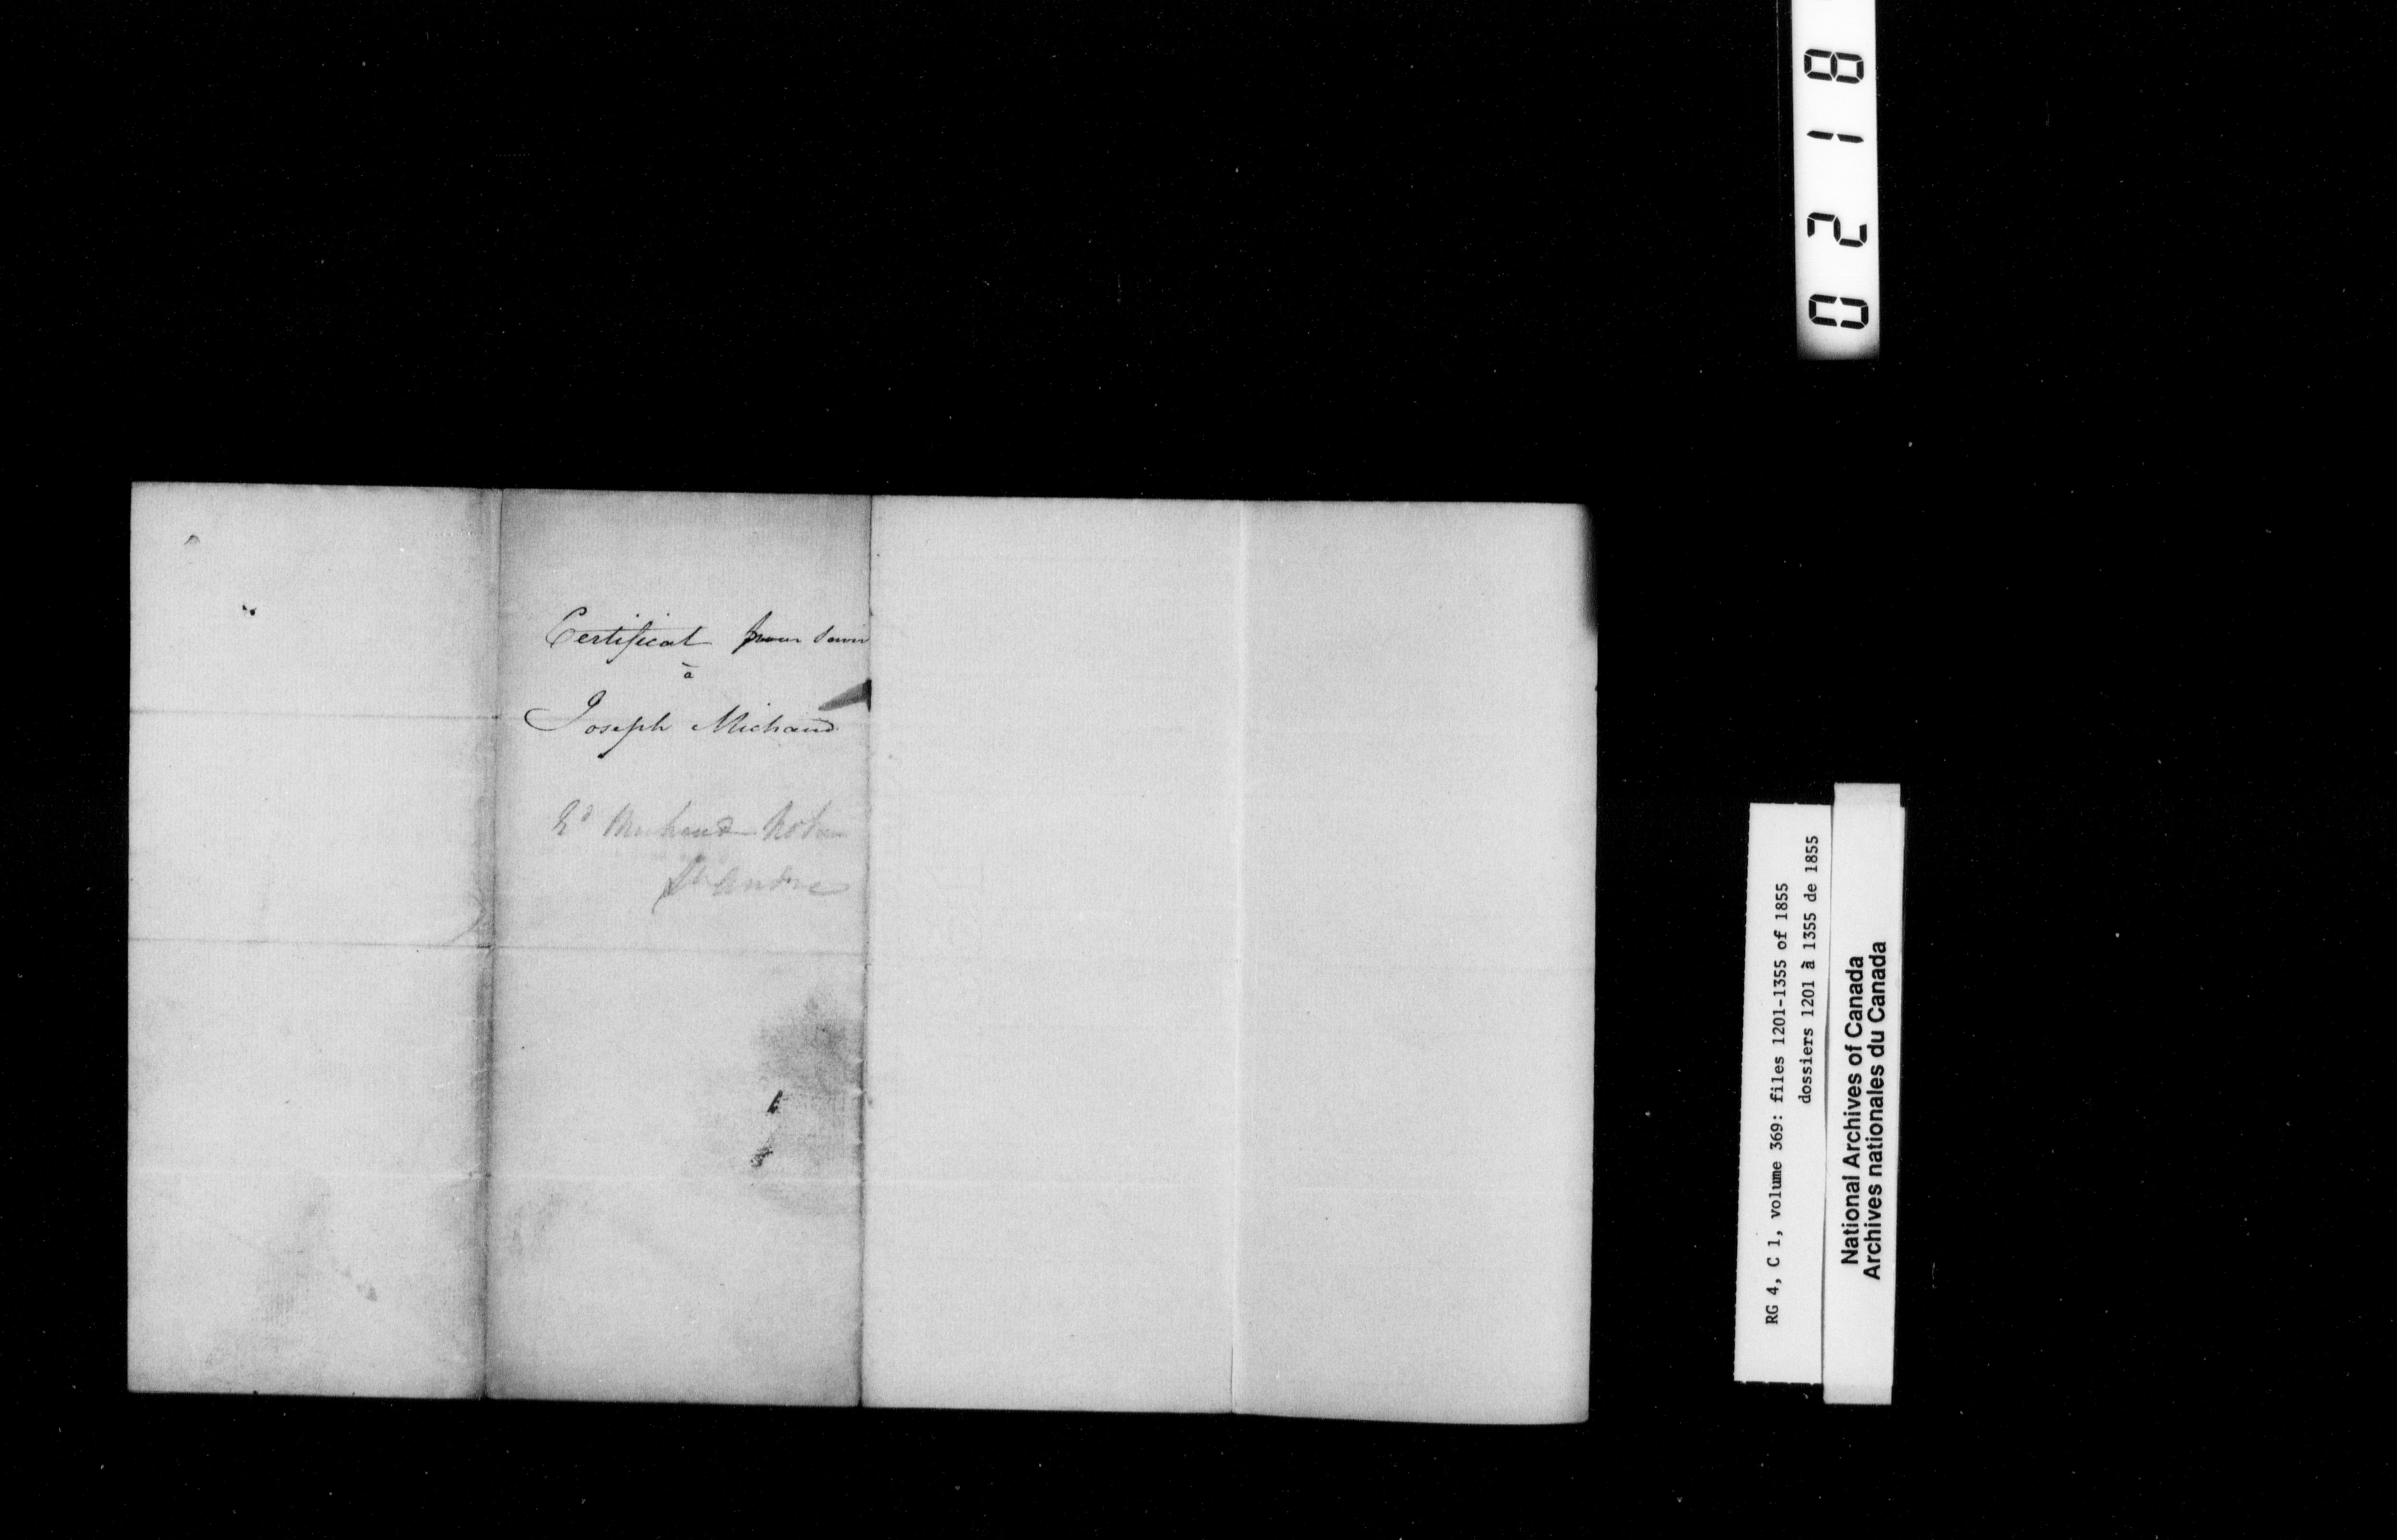 Certificat pour servir
à
Joseph Michaud
Michaud
St André
0218
RG 4, C 1, volume 369: files 1201-1355 of 1855
dossiers 1201 à 1355 de 1855
National Archives of Canada
Archives nationales du Canada